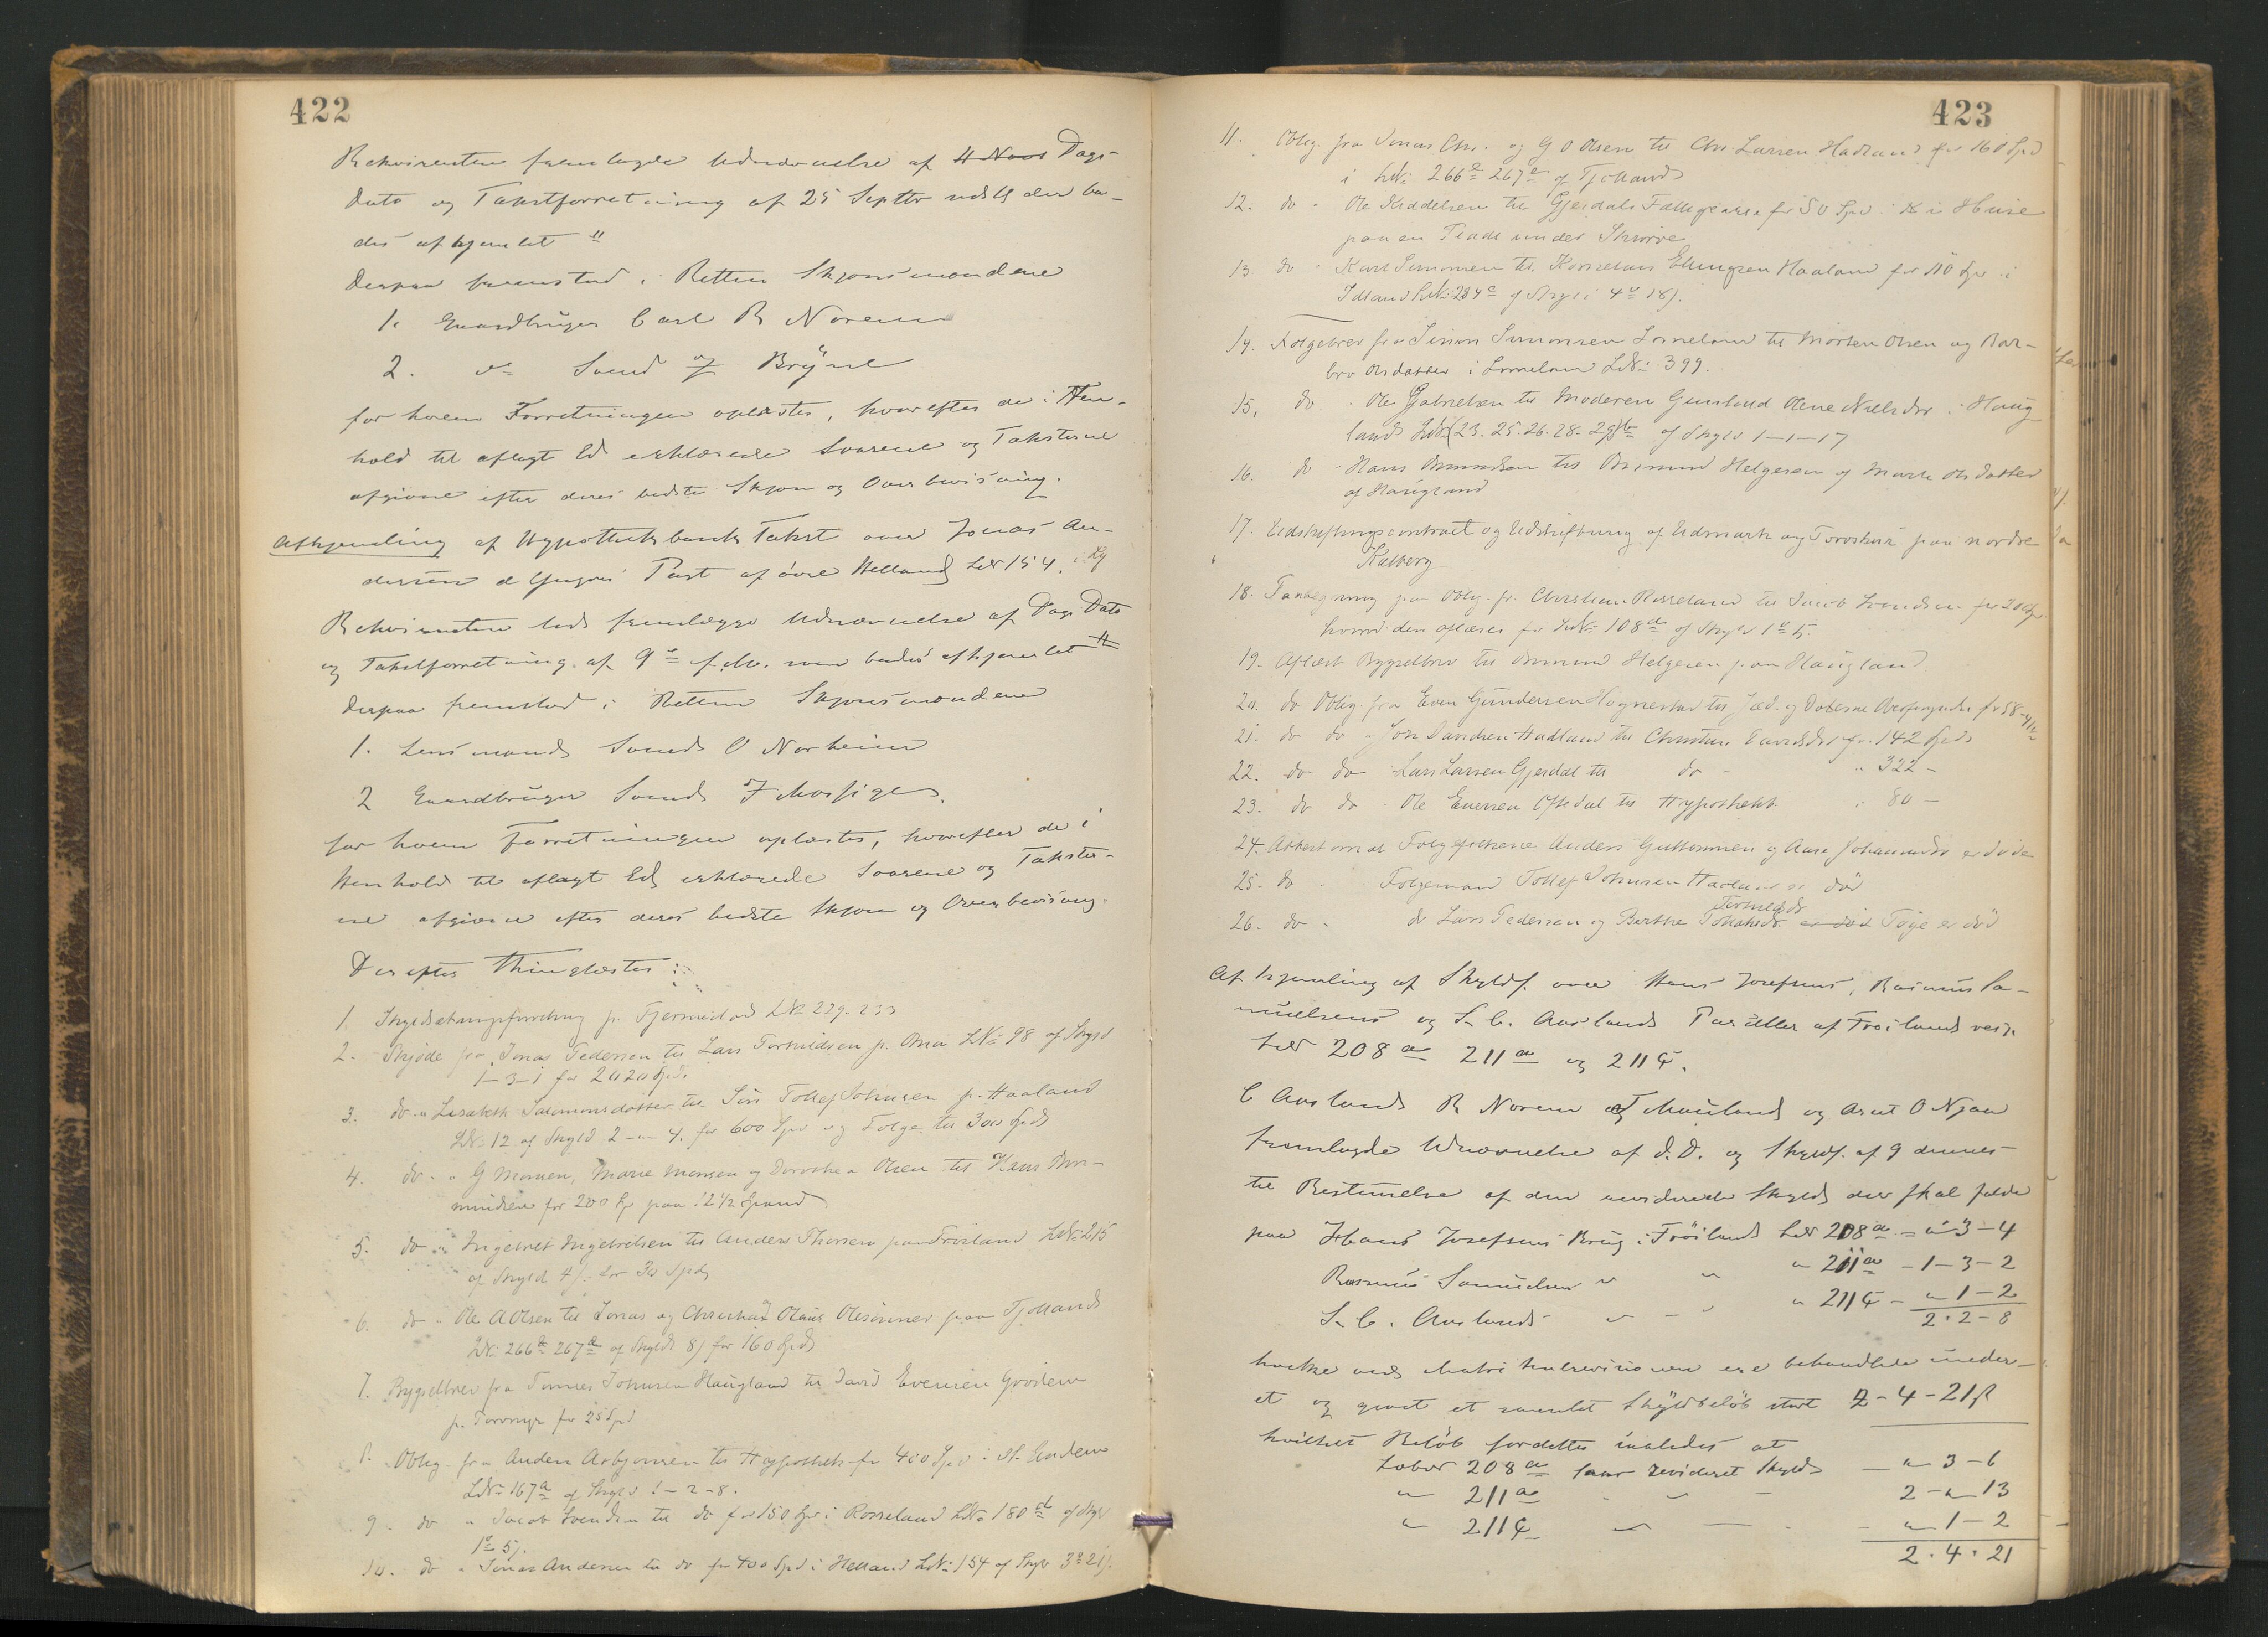 422
Rekvirenten fremlagde Udnævnelse af 4 Novr Dags
Dato og Takstforretning af 25 Septbr udstd der be-
des afhjemlet "
Derpaa fremstod i Retten Skjønsmændene
1. Gaardbruger Carl R Noreim
2. do Svend Bryne
for hvem Forretningen oplæstes, hvorefter de i Hen-
hold til aflagt Ed erklærede Svarene og Taksterne
afgivne efter deres bedste Skjøn og Overbevisning.
Afhjemling af Hypothekbanks Takst over Jonas An-
dersens Part af øvre Helland LNr 154.
Rekvirenten lod fremlægge Udnævnelse af Dags Dato
og Takstforretning af 9de f.M. som bedes afhjemlet
Derpaa fremstod i Retten Skjønsmændene
1. Lensmand Svend O Norheim
2 Gaardbruger Svend Mossige
for hvem Forretningen oplæstes, hvorefter de i
Henhold til aflagt Ed erklærede Svarene og Takster-
ne afgivne efter deres bedste Skjøn og Overbevisning.
Derefter thinglæstes:
1. Skyldsætningsforretning p. Tjermestad LNr 229. 233
2. Skjøde fra Jonas Pedersen til Lars Torkildsen p. Oma LNr 98 af Skyld
1-3-1 for 2020 Spd.
3. do " Lisabeth Salomonsdatter til Søn Tollef Johnsen p. Haaland
LNr 12 af Skyld 2-"-4. for 600 Spd og Folge til 300 Spd
4. do " G Monsen, Marie Monsen og Dorothea Olsen til Hans Om-
mundsen for 200 Sp paa 12 1/2 Spand
5. do " Ingebret Ingebretsen til Anders Thorsen paa Froiland LNr 215
af Skyld 4 for 30 Spd
6. do " Ole A Olsen til Jonas og Christian Olaus Olesønner paa Tjotland
LNr 266a 267a af Skyld 8 for 160 Spd
7. Bygselbrev fra Tønnes Johnsen Haugland til David Evensen
p. Torvmyr for 25 Spd
8. Oblig. fra Anders Asbjørnsen til Hypothek for 400 Spd i
LNr 167a af Skyld 1-2-8.
9. do " Jacob Svendsen til do for 150 Sp i Rosseland LNr 180 af Skyld
10. do " Jonas Andersen til do for 400 Spd i Helland LNr 154 af Skyld 3 21
423
11. Oblig. fra Jonas Chr. og G O Olsen til Chr. Larsen Hadland for 160 Spd
i LNr 266a 267a af Tjotland
12. do " Ole Kiddelsen til Gjesdals Fattigcasse for 50 Spd i Huse
paa en Plads under Skurve
13. do " Karl Simonsen til Kornelius Ellingsen Haaland for 110 Spd i
LNr 284a af Skyld 4 18
14. Folgebrev fra Simon Simonsen til Morten Olsen og Bar-
bro Olsdatter i LNr 399.
15. do " Ole Gabrielsen til Moderen Gunild Olene Nielsdtr i Haug
land LNr 23. 25. 26. 28. 29 af Skyld 1-1-17
16. do " Hans Ommundsen til Ommund Helgesen og Marta Olsdatter
af Haugland
17. Udskiftningscontract og Udskiftning af Udmark og Torvskur paa nordre
Kalberg
18. Paategning paa Oblig. fr. Christian Rosseland til Jacob Svendsen for 200 Sp
hvorved den aflæses for LNr 108a af Skyld 1 5.
19. Aflæst Bygselbrev til Ommund Helgesen paa Haugland
20. do Oblig. fra Even Gundersen Hognestad til Jæd. og Dalerne Overformynderi for 58
21. do do " Jon Davidsen Hadland til Christine Davidsdtr for 142 Spd
22. do do " Lars Larsen Gjesdal til do " 322 -
23. do do " Ole Enersen Oftedal til Hypothekb " 80 -
24. Attest om at Folgefolkene Anders Guttormsen og Aase Johannesdtr er døde
25. do " Folgemand Tollef Johnsen Haaland er død
26. do " do Lars Pedersen og Berthe er død Tøge er død
Afhjemling af Skyldf. over Hans Josefsens, Rasmus Sa-
muelsens og S. C. Auslands Parceller af Froiland resp.
LNr 208a 211a og 211c.
C Ausland R Noreim Mauland og Aent O Njaa
fremlagde Udnævnelse af d.D. og Skyldf. af 9 dennes
til Bestemelse af den reviderede Skyld der skal falde
paa Hans Josefsens Brug i Frøiland LNr 208a = "-3-4
Rasmus Samuelsen " " " 211a - 1-3-2
S. C. Ausland " - " " 211c - "-1-2
2-2-8
hvilke ved Matrikulrevisionen ere behandlede under
et og givet et samlet Skyldbeløb stort 2-4-21 ß
hvilket Beløb fordeltes saaledes at
Løbnr 208a faar revideret Skyld - "-3-6
" 211a - " - 2-"-13
" 211c " - - "-1-2
2.4.21